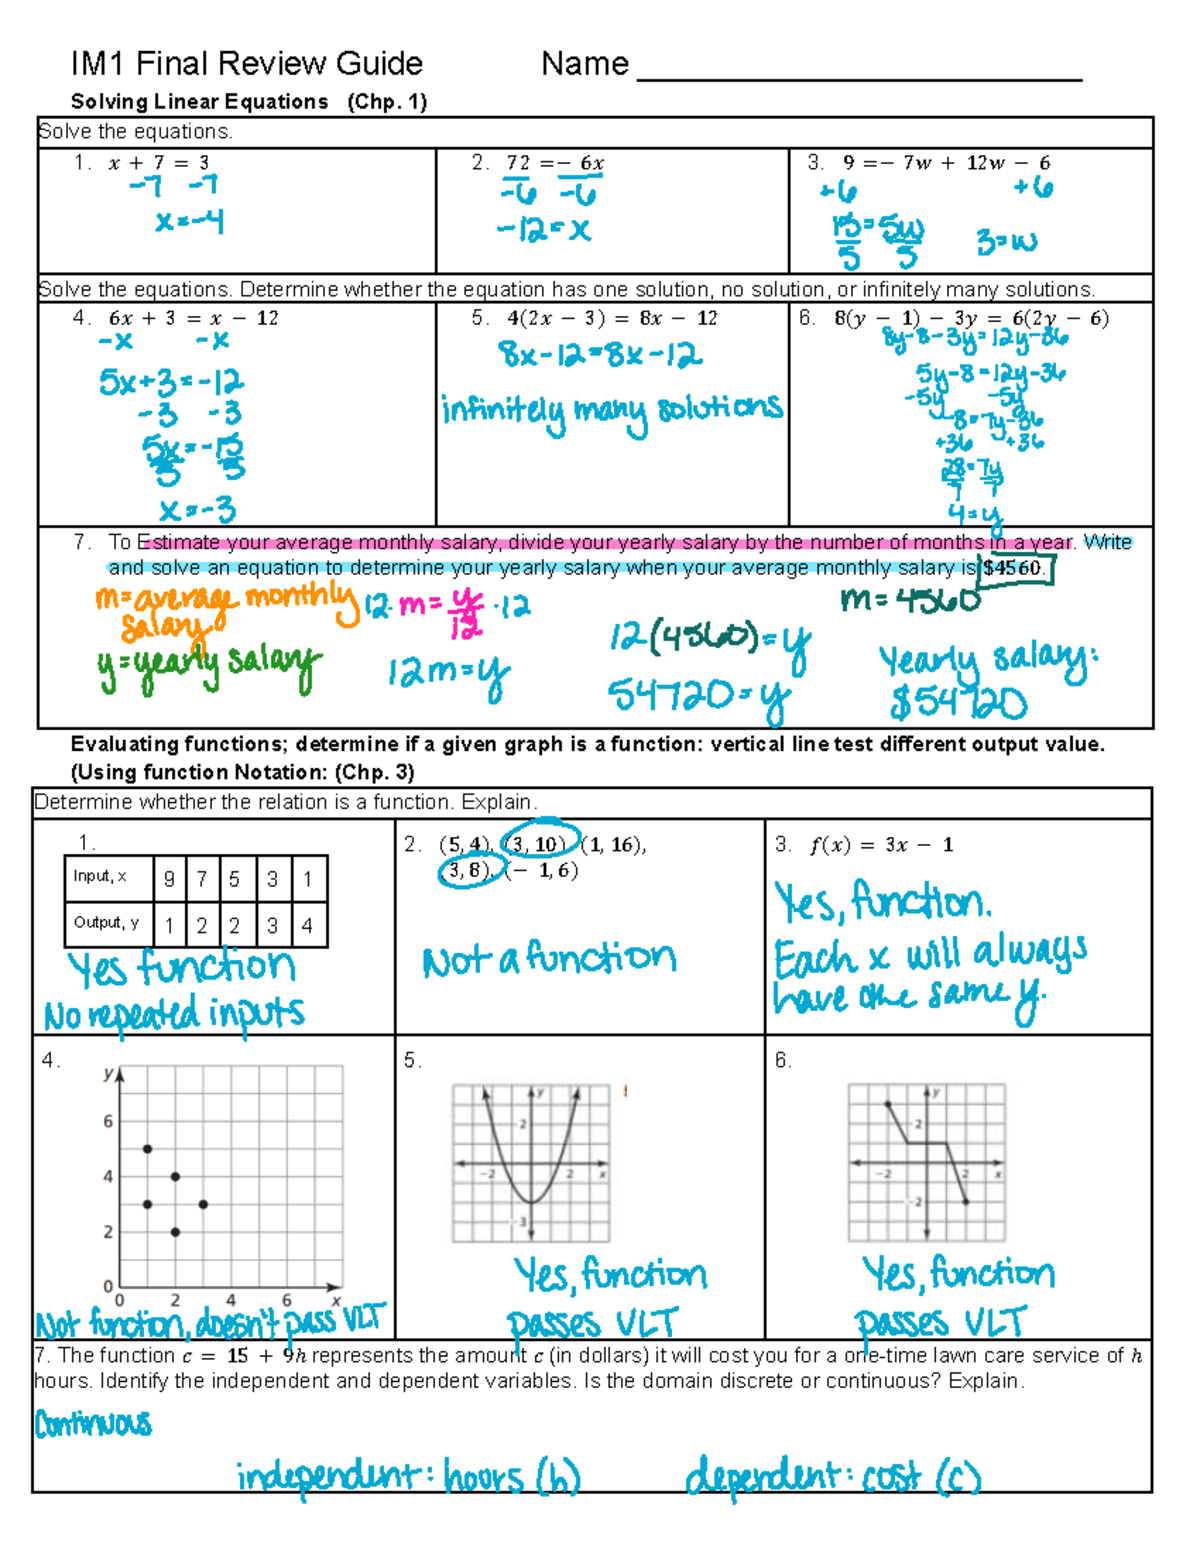 IM1 Final Review Guide Name
Solving Linear Equations (Chp. 1)
Solve the equations.
1. x + 7 = 3
-7 -7
x=-4
2. 72 =− 6x
-6 -6
-12=x
3. 9 =− 7w + 12w − 6
+6 +6
15=5w
5 5
3=w
Solve the equations. Determine whether the equation has one solution, no solution, or infinitely many solutions.
4. 6x + 3 = x − 12
-x -x
5x+3=-12
-3 -3
5x=-15
5 5
x=-3
5. 4(2x − 3) = 8x − 12
8x-12=8x-12
infinitely many solutions
6. 8(y − 1) − 3y = 6(2y − 6)
8y-8-3y=12y-36
5y-8=12y-36
-5y -5y
-8=7y-36
+36 +36
28=7y
7 7
4=y
7. To Estimate your average monthly salary, divide your yearly salary by the number of months in a year. Write
and solve an equation to determine your yearly salary when your average monthly salary is $4560.
m=average monthly
salary
y=yearly salary
12·m=y/12·12
12m=y
12(4560)=y
54720=y
m=4560
Yearly salary:
$54720
Evaluating functions; determine if a given graph is a function: vertical line test different output value.
(Using function Notation: (Chp. 3)
Determine whether the relation is a function. Explain.
1.
Input, x 9 7 5 3 1
Output, y 1 2 2 3 4
Yes function
No repeated inputs
2. (5, 4), (3, 10), (1, 16),
(3, 8), (− 1, 6)
Not a function
3. f(x) = 3x − 1
Yes, function.
Each x will always
have one same y.
4.
y
6
4
2
0
0 2 4 6 x
Not function, doesn't pass VLT
5.
y
2
-2 2 x
-3
Yes, function
passes VLT
6.
y
2
-2 2 x
-2
Yes, function
passes VLT
7. The function c = 15 + 9h represents the amount c (in dollars) it will cost you for a one-time lawn care service of h
hours. Identify the independent and dependent variables. Is the domain discrete or continuous? Explain.
Continuous
independent: hours (h) dependent: cost (c)